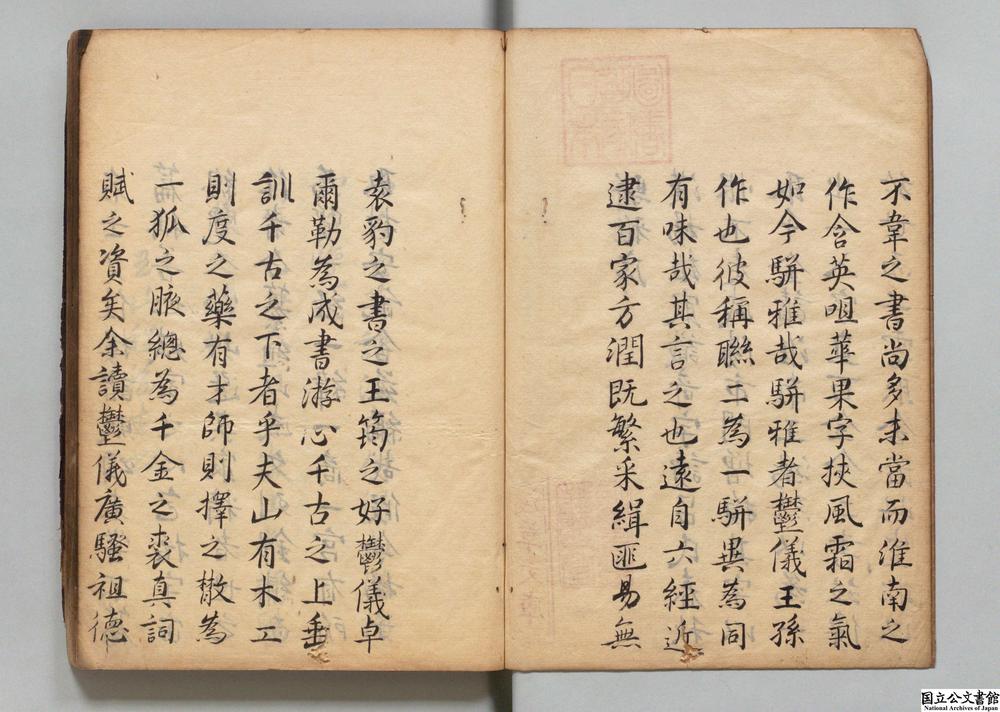 不韋之書尚多未當而淮南之
作含英咀華果字挾風霜之氣
如今駢雅哉駢雅者鬱儀王孫
作也彼稱聯二為一駢異為同
有味哉其言之也遠自六經近
逮百家方潤既繁采緝匪易無
袁豹之書之王筠之好鬱儀卓
爾勒為成書游心千古之上垂
訓千古之下者乎夫山有木工
則度之藥有才師則擇之散為
一狐之腋總為千金之裘真詞
賦之資矣余讀鬱儀廣騷祖德
国立公文書館
National Archives of Japan